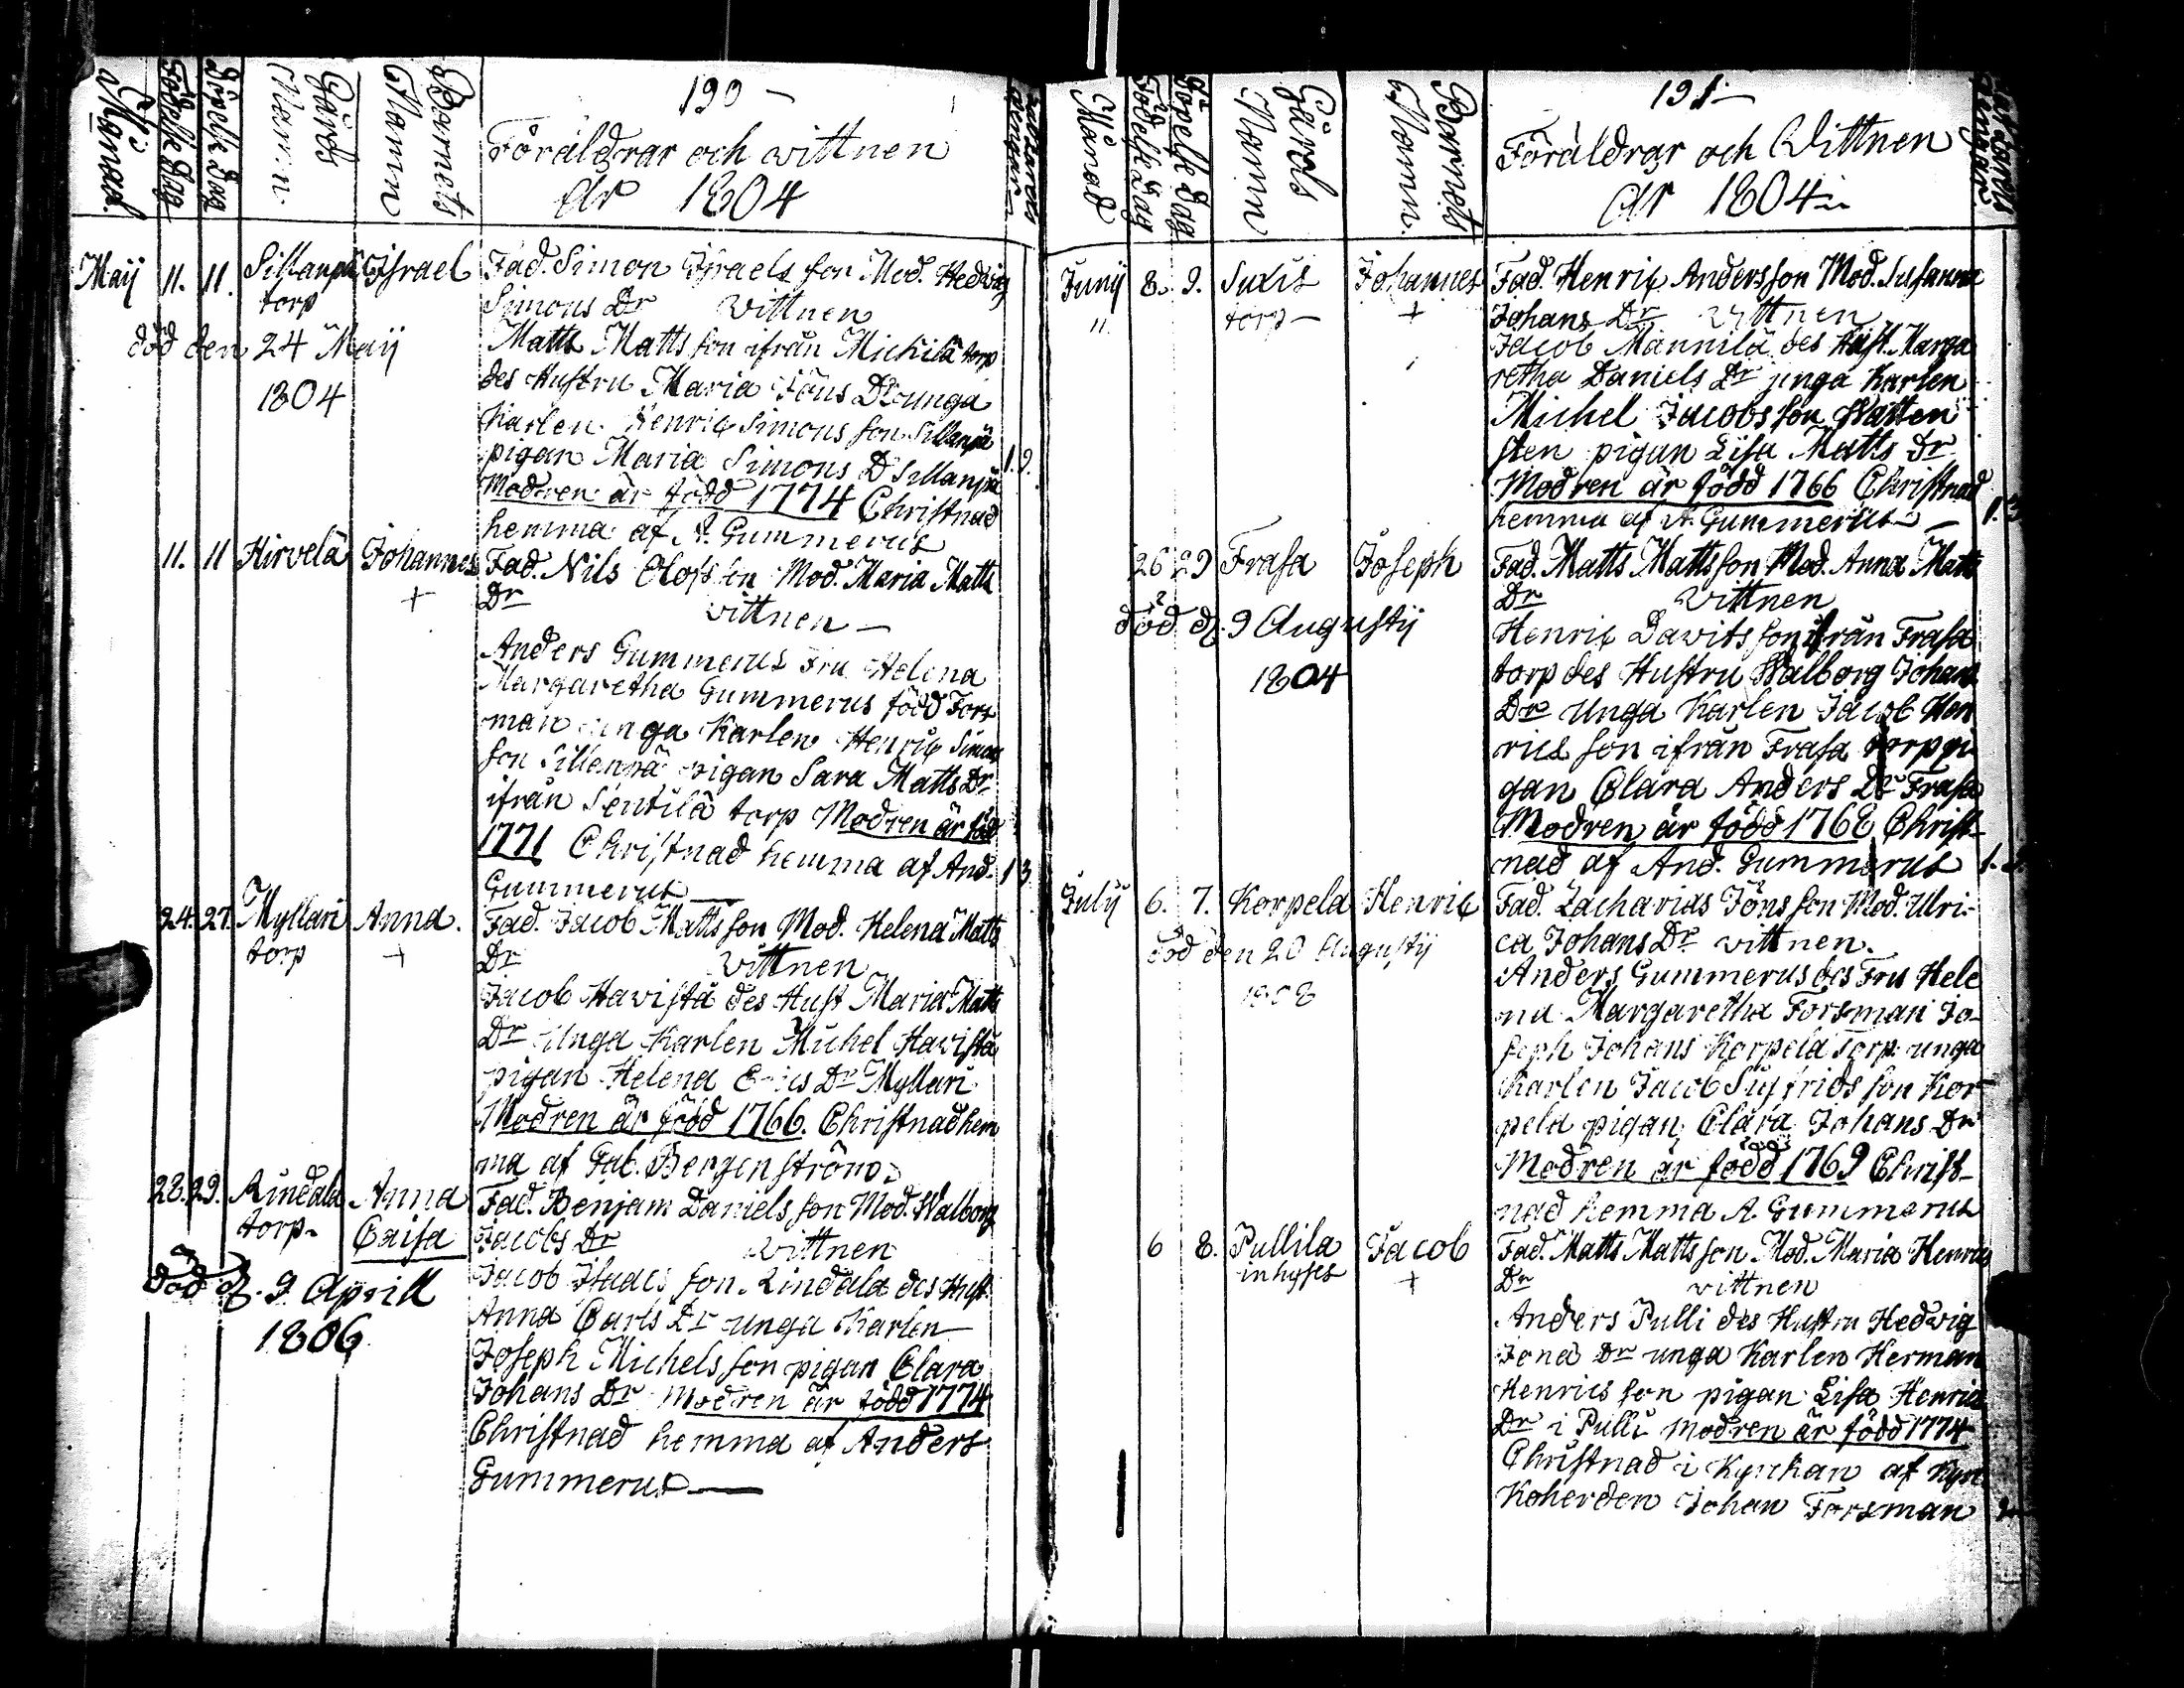 Månad
Födelse Dag
Döpelse Dag
Gårds Namn
Barnets Namn
190 –
Föräldrar och wittnen
År 1804
Maij 11. 11. Sillanpä Israel
torp
död den 24 Maij
1804
Fad. Simon Israels son Mod. Hedvig
Simons Dr wittnen
Matts Matts son ifrån Mickilä torp
des Hustru Maria Jöns Dr unga
Karlen Henric Simons son Sillanpä
pigan Maria Simons D Sillanpä
Modren är född 1774 Christnad
hemma af A. Gummerus
11. 11 Hirvelä Johannes
+
Fad. Nils Olofs son Mod. Maria Matts
Dr wittnen –
Anders Gummerus Fru Helena
Margaretha Gummerus född Fors
man unga Karlen Henric Simons
son Sillanpä pigan Sara Matts Dr
ifrån Sentilä torp Modren är föd
1771 Christnad hemma af And.
Gummerus –
24. 27. Myllari Anna.
torp +
Fad. Jacob Matts son Mod. Helena Matts
Dr wittnen
Jacob Havista des Hust Maria Matts
Dr Unga Karlen Michel Havista
pigan Helena Erics Dr Myllari
Modren är född 1766. Christnad hem
ma af Gab. Bergenström
28. 29. Rindala Anna
torp. Caisa
död d. 9 Aprill
1806
Fad. Benjam Daniels son Mod. Walborg
Jacobs Dr wittnen
Jacob Isaacs son Rindala des Hust.
Anna Carls Dr unga Karlen
Joseph Michels son pigan Clara
Johans Dr Modren är född 1774
Christnad hemma af Anders
Gummerus —
Månad
Födelse Dag
Döpelse Dag
Gårds Namn
Barnets Namn
191 –
Föräldrar och Wittnen
År 1804
Junij 8. 9. Suxis Johannes
11 torp – +
Fad. Henric Anders son Mod. Susanna
Johans Dr wittnen
Jacob Mannilä des Hust. Marga
retha Daniels Dr unga Karlen
Michel Jacobs son Watten
sten pigan Lisa Matts Dr
Modren är född 1766 Christnad
hemma af A. Gummerus –
26 29 Frasa Joseph
död d. 9 Augustij
1804
Fad. Matts Matts son Mod. Anna Matts
Dr wittnen
Henric Davits son ifrån Frasa
torp des Hustru Walborg Johans
Dr unga Karlen Jacob Hen
rics son ifrån Frasa torp pi
gan Clara Anders Dr Frasa
Modren är född 1768 Christ-
nad af And. Gummerus
Julij 6. 7. Korpela Henric
död den 20 Augustij
1808
Fad. Zacharias Jöns son Mod. Ulri-
ca Johans Dr wittnen.
Anders Gummerus des Fru Hele
na Margaretha Forsman Jo-
seph Johans Korpela Torp unga
Karlen Jacob Sigfrids son Kor
pela pigan Clara Johans Dr
Modren är född 1769 Christ-
nad hemma A. Gummerus
6 8. Pullila Jacob
inhyses +
Fad. Matts Matts son Mod. Maria Henrics
Dr wittnen
Anders Pulli des Hustru Hedvig
Jona Dr unga Karlen Herman
Henrics son pigan Lisa Henrics
Dr i Pulli Modren är född 1774
Christnad i Kyrckan af Kyrc
Koherden Johan Forsman